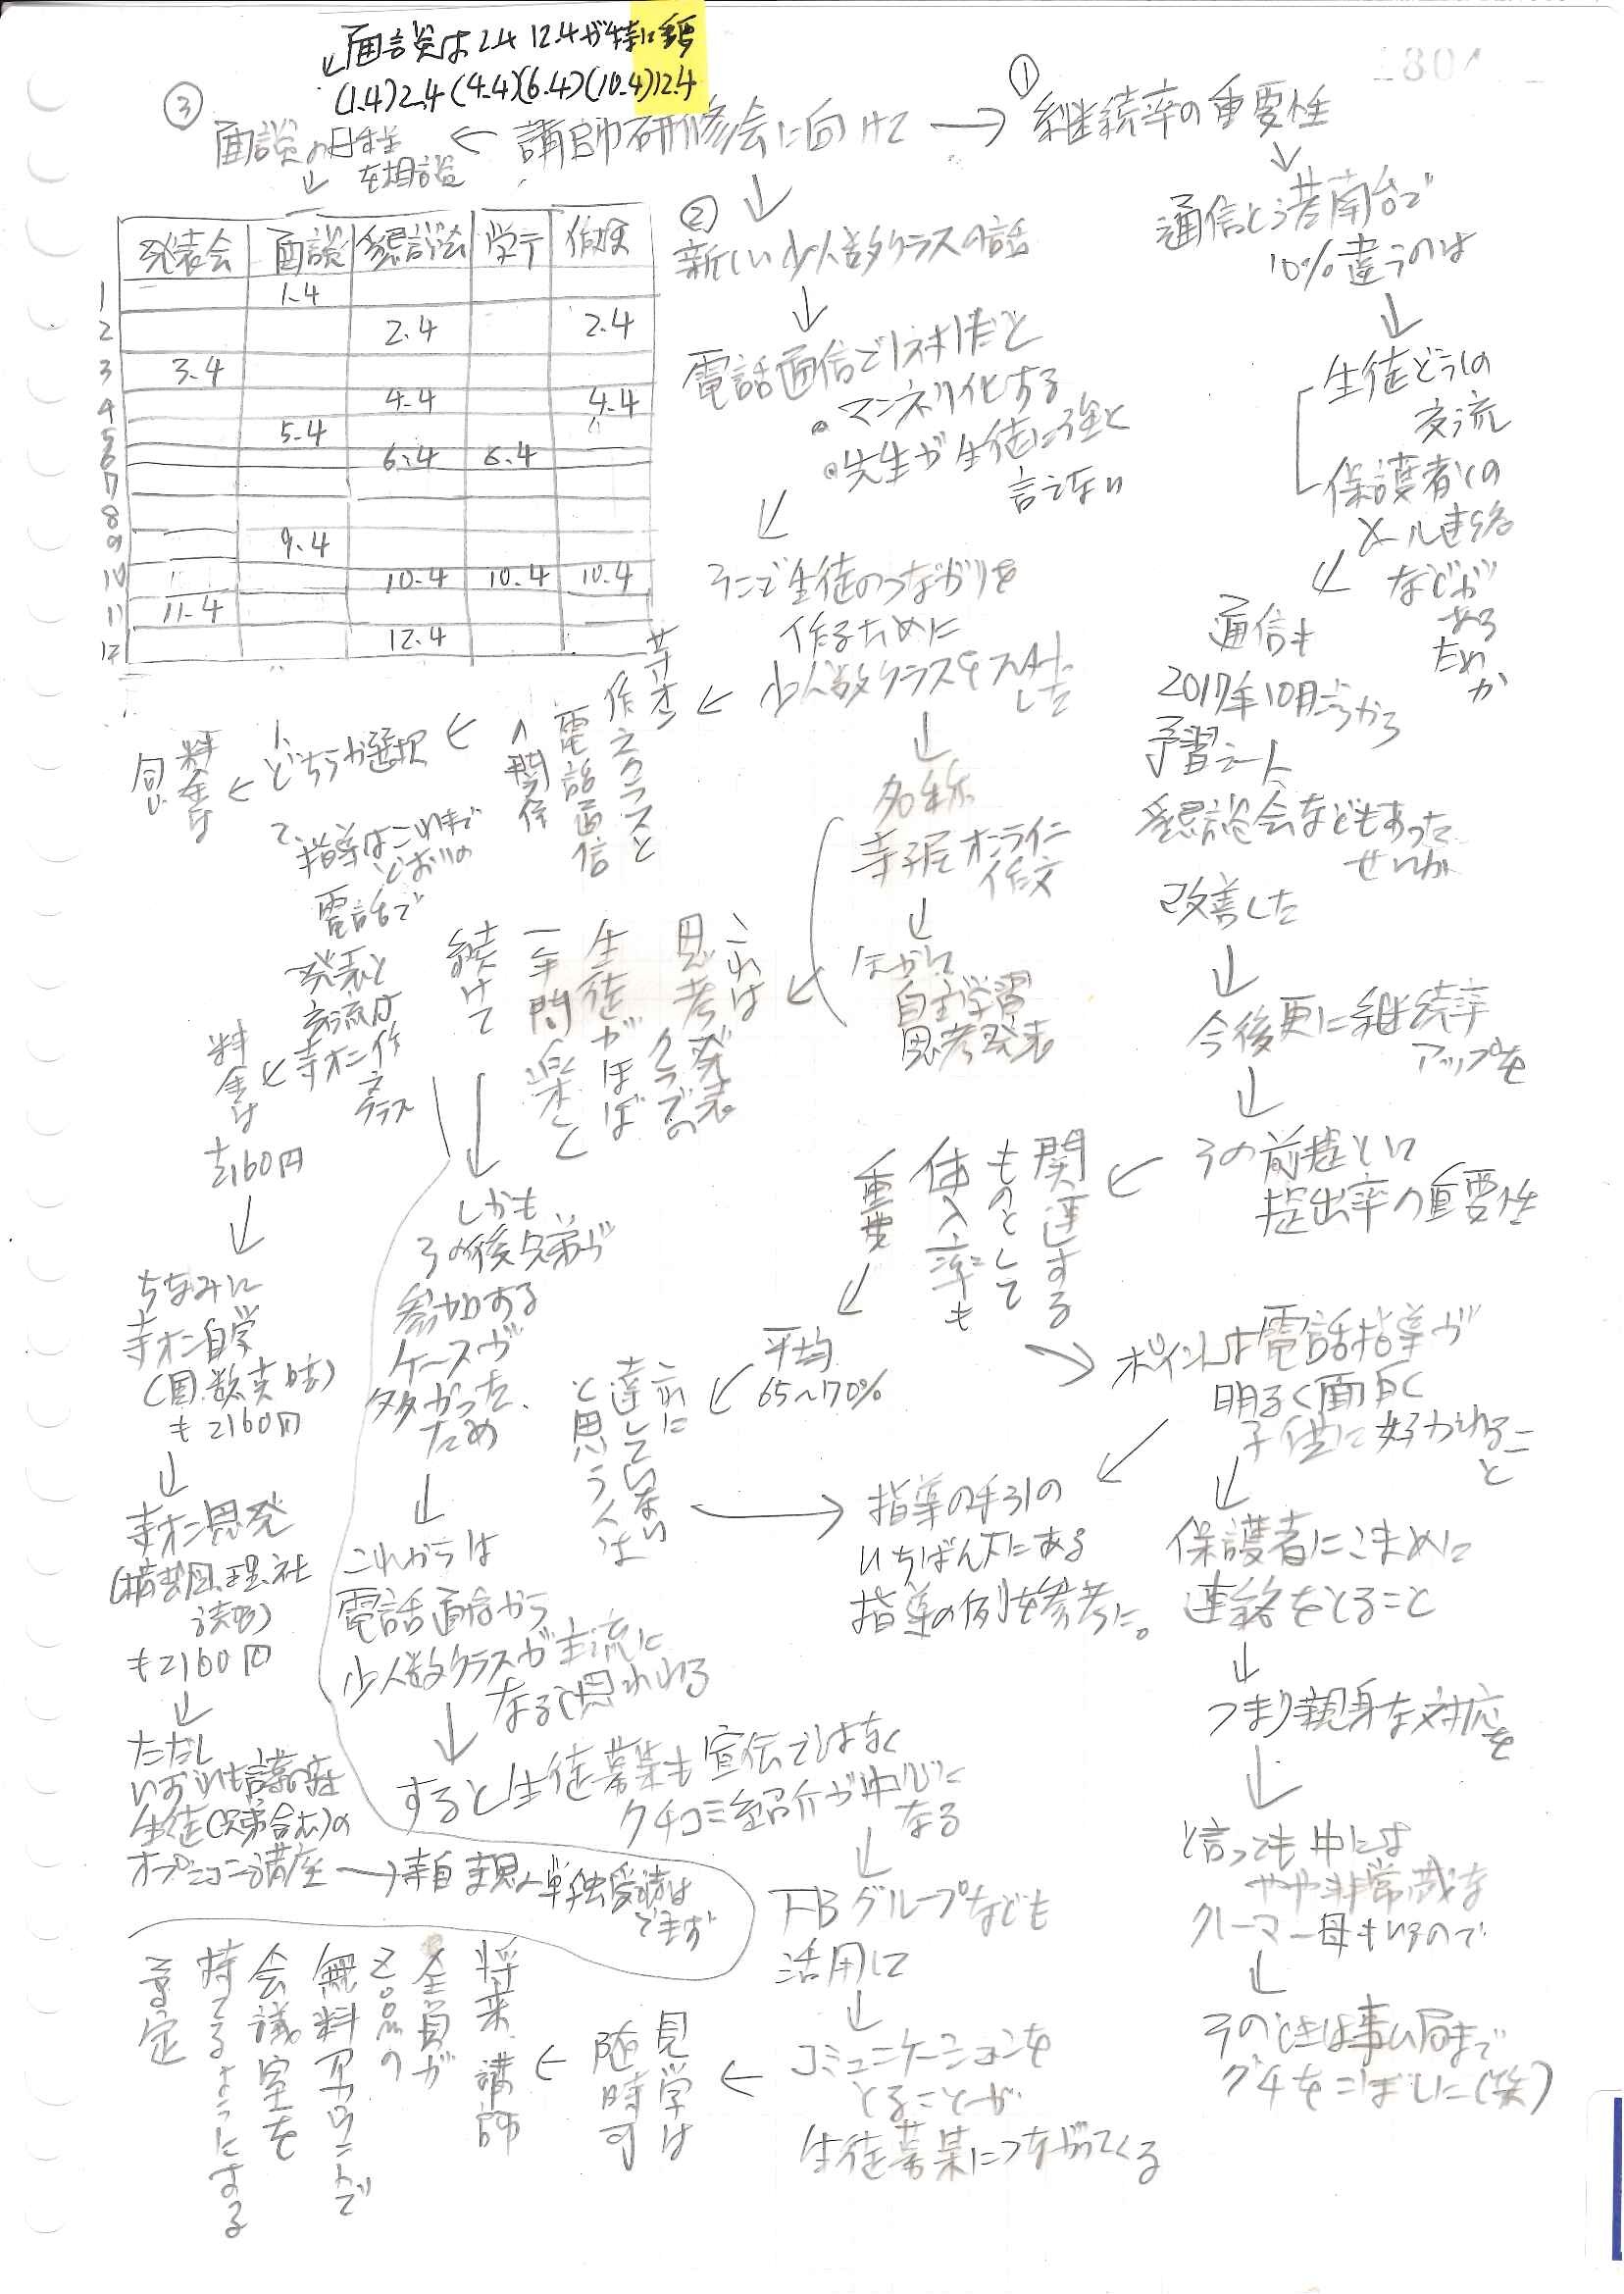 面談は2.4 12.4が特に重要
(1.4)2.4(4.4)(6.4)(10.4)12.4
講師研修会に向けて
①
継続率の重要性
通信と港南台で
10%違うのは
生徒どうしの
交流
保護者との
メール連絡
などが
ある
ため
か
通信も
2017年10月ごろから
予習シート
懇談会などもあった
せいか
改善した
今後更に継続率
アップを
その前提として
提出率の重要性
関連する
ものとして
体入率も
重要
平均
65〜70%
これに
達していない
と思う人は
ポイントは電話指導が
明るく面白く
子供に好かれるこ
と
指導の手引の
いちばん下にある
指導の例を参考に。
保護者にこまめに
連絡をとること
つまり親身な対応を
と言っても中には
やや非常識な
クレーマー母もいるので
そのときは事ム局まで
グチをこぼしに(笑)
②
新しい少人数クラスの話
電話通信で1対1だと
・マンネリ化する
・先生が生徒に強く
言えない
そこで生徒のつながりを
作るために
少人数クラスをスタート
した
名称
寺子屋オンライン
作文
ほかに
自主学習
思考発表
これは
思考発表
クラスでの
生徒がほぼ
一年間楽しく
続けて
しかも
その後兄弟が
参加する
ケースが
多かった
ため
これからは
電話通信から
少人数クラスが主流に
なると思われる
すると生徒募集も宣伝ではなく
クチコミ紹介が中心に
なる
FBグループなども
活用して
コミュニケーションを
とることが
生徒募集につながってくる
見学は
随時可
将来、講師
全員が
Zoomの
無料アカウントで
会議室を
持てるようにする
予定
寺オン
作文クラスと
電話通信
の関係
1、
どちらか選択
料金は
同じ
2、指導はこれまで
どおりの
電話で
発表と
交流が
寺オン作文
クラス
料金は
+2160円
ちなみに
寺オン自学
(国、数、英 時)
も2160円
寺オン思発
(構想図、理、社
読解)
も2160円
ただし
いずれも言葉の森
生徒(兄弟含む)の
オプション講座
寺自 寺思の単独受講は
できず
③
面談の日程
を相談
発表会 面談 懇談会 学テ 作検
1 1.4
2 2.4 2.4
3 3.4
4 4.4 4.4
5 5.4
6 6.4 6.4
7
8
9 9.4
10 10.4 10.4 10.4
11 11.4
12 12.4